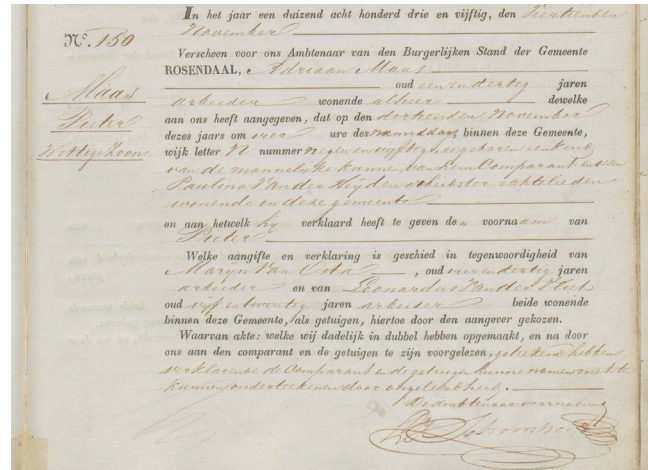 In het jaar een duizend acht honderd drie en vijftig, den veertienden
November
N°. 150
Verscheen voor ons Ambtenaar van den Burgerlijken Stand der Gemeente
ROSENDAAL, Adriaan Maas
oud een en dertig jaren
Maas
arbeider wonende alhier dewelke
Peeter
aan ons heeft aangegeven, dat op den dertienden November
Wettige Zoon
dezes jaars om vier ure des namiddags binnen deze Gemeente,
wijk letter N nummer negen en vijftig, is geboren een kind
van de mannelijke kunne, van hem Comparant en van
Paulina Van der Heijden echtelieden
wonende in deze gemeente
en aan hetwelk hij verklaard heeft te geven den voornaam van
Peeter
Welke aangifte en verklaring is geschied in tegenwoordigheid van
Marijn Van Osta, oud vier en dertig jaren
arbeider en van Leonardus Van der Vliet
oud vijf en twintig jaren arbeider beide wonende
binnen deze Gemeente, als getuigen, hiertoe door den aangever gekozen.
Waarvan akte: welke wij dadelijk in dubbel hebben opgemaakt, en na door
ons aan den comparant en de getuigen te zijn voorgelezen, geteekend hebben
verklarende de Comparant en de getuigen hunne namen niet te
kunnen onderteekenen door ongeleerdheid.
De ambtenaar voornoemd